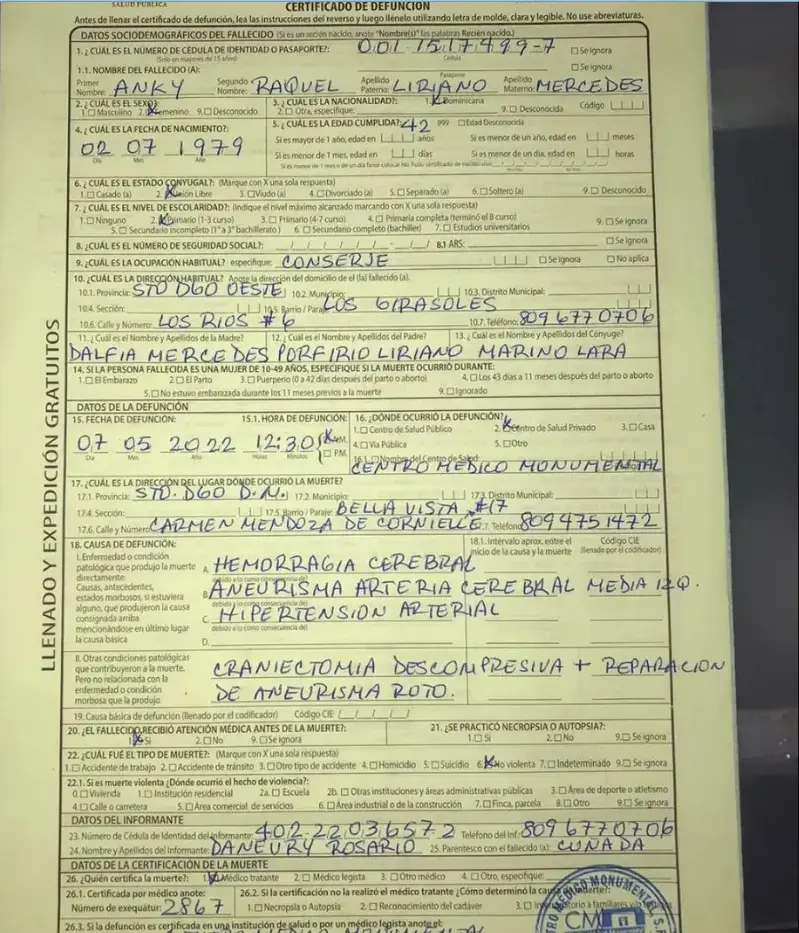 SALUD PÚBLICA
CERTIFICADO DE DEFUNCIÓN
Antes de llenar el certificado de defunción, lea las instrucciones del reverso y luego llénelo utilizando letra de molde, clara y legible. No use abreviaturas.
DATOS SOCIODEMOGRÁFICOS DEL FALLECIDO (Si es un recién nacido, anote "Nombre(s)" las palabras Recién nacido.)
1. ¿CUÁL ES EL NÚMERO DE CÉDULA DE IDENTIDAD O PASAPORTE? 001-1517499-7 Se ignora
(Solo en mayores de 15 años) Cédula
1.1. NOMBRE DEL FALLECIDO (A): Pasaporte Se ignora
Primer Nombre: ANKY Segundo Nombre: RAQUEL Apellido Paterno: LIRIANO Apellido Materno: MERCEDES
2. ¿CUÁL ES EL SEXO? 3. ¿CUÁL ES LA NACIONALIDAD? 1. X Dominicana
1. Masculino 2. X Femenino 9. Desconocido 2. Otra, especifique: 9. Desconocida Código
4. ¿CUÁL ES LA FECHA DE NACIMIENTO?: 5. ¿CUÁL ES LA EDAD CUMPLIDA? 42 999 Edad Desconocida
02 07 1979 Si es mayor de 1 año, edad en años Si es menor de un año, edad en meses
Día Mes Año Si es menor de 1 mes, edad en días Si es menor de un día, edad en horas
6. ¿CUÁL ES EL ESTADO CONYUGAL? (Marque con X una sola respuesta)
1. Casado (a) 2. X Unión Libre 3. Viudo (a) 4. Divorciado (a) 5. Separado (a) 6. Soltero (a) 9. Desconocido
7. ¿CUÁL ES EL NIVEL DE ESCOLARIDAD? (Indique el nivel máximo alcanzado marcando con X una sola respuesta)
1. Ninguno 2. X Primario (1-3 curso) 3. Primario (4-7 curso) 4. Primaria completa (terminó el 8 curso) 9. Se ignora
5. Secundario incompleto (1° a 3° bachillerato) 6. Secundario completo (bachiller) 7. Estudios universitarios
8. ¿CUÁL ES EL NÚMERO DE SEGURIDAD SOCIAL? 8.1 ARS: Se ignora
9. ¿CUÁL ES LA OCUPACIÓN HABITUAL? especifique: CONSERJE Se ignora No aplica
10. ¿CUÁL ES LA DIRECCIÓN HABITUAL? Anote la dirección del domicilio de el (la) fallecido (a).
10.1. Provincia: STO DGO OESTE 10.2. Municipio: 10.3. Distrito Municipal:
10.4. Sección: 10.5. Barrio / Paraje: LOS GIRASOLES
10.6. Calle y Número: LOS RIOS #6 10.7. Teléfono: 809 677 0706
11. ¿Cuál es el Nombre y Apellidos de la Madre? 12. ¿Cuál es el Nombre y Apellidos del Padre? 13. ¿Cuál es el Nombre y Apellidos del Cónyuge?
DALFIA MERCEDES PORFIRIO LIRIANO MARINO LARA
14. SI LA PERSONA FALLECIDA ES UNA MUJER DE 10-49 AÑOS, ESPECIFIQUE SI LA MUERTE OCURRIÓ DURANTE:
1. El Embarazo 2. El Parto 3. Puerperio (0 a 42 días después del parto o aborto) 4. Los 43 días a 11 meses después del parto o aborto
5. No estuvo embarazada durante los 11 meses previos a la muerte 9. Ignorado
DATOS DE LA DEFUNCIÓN
15. FECHA DE DEFUNCIÓN: 15.1. HORA DE DEFUNCIÓN: 16. ¿DÓNDE OCURRIÓ LA DEFUNCIÓN?
1. Centro de Salud Público 2. X Centro de Salud Privado 3. Casa
07 05 2022 12:30 X A.M. P.M. 4. Vía Pública 5. Otro
Día Mes Año Horas Minutos 16.1. Nombre del Centro de Salud:
CENTRO MEDICO MONUMENTAL
17. ¿CUÁL ES LA DIRECCIÓN DEL LUGAR DÓNDE OCURRIÓ LA MUERTE?
17.1. Provincia: STO. DGO D.N. 17.2. Municipio: 17.3. Distrito Municipal:
17.4. Sección: 17.5. Barrio / Paraje: BELLA VISTA #17
17.6. Calle y Número: CARMEN MENDOZA DE CORNIELLE 17.7. Teléfono: 809 475 1472
18. CAUSA DE DEFUNCIÓN: 18.1. Intervalo aprox. entre el inicio de la causa y la muerte Código CIE (llenado por el codificador)
I. Enfermedad o condición patológica que produjo la muerte directamente: A. HEMORRAGIA CEREBRAL
debido a (o como consecuencia de)
Causas, antecedentes, estados morbosos, si estuviera alguno, que produjeron la causa consignada arriba mencionándose en último lugar la causa básica
B. ANEURISMA ARTERIA CEREBRAL MEDIA IZQ.
debido a (o como consecuencia de)
C. HIPERTENSION ARTERIAL
debido a (o como consecuencia de)
D.
II. Otras condiciones patológicas que contribuyeron a la muerte. Pero no relacionada con la enfermedad o condición morbosa que la produjo
CRANIECTOMIA DESCOMPRESIVA + REPARACION
DE ANEURISMA ROTO.
19. Causa básica de defunción (llenado por el codificador) Código CIE
20. ¿EL FALLECIDO, RECIBIÓ ATENCIÓN MÉDICA ANTES DE LA MUERTE?: 21. ¿SE PRACTICÓ NECROPSIA O AUTOPSIA?
1. X Si 2. No 9. Se ignora 1. Si 2. No 9. Se ignora
22. ¿CUÁL FUÉ EL TIPO DE MUERTE?: (Marque con X una sola respuesta)
1. Accidente de trabajo 2. Accidente de tránsito 3. Otro tipo de accidente 4. Homicidio 5. Suicidio 6. X No violenta 7. Indeterminado 9. Se ignora
22.1. Si es muerte violenta ¿Dónde ocurrió el hecho de violencia?:
0. Vivienda 1. Institución residencial 2a. Escuela 2b. Otras instituciones y áreas administrativas públicas 3. Área de deporte o atletismo
4. Calle o carretera 5. Área comercial de servicios 6. Área industrial o de la construcción 7. Finca, parcela 8. Otro 9. Se ignora
DATOS DEL INFORMANTE
23. Número de Cédula de Identidad del Informante: 402-2203657 2 Teléfono del Inf: 809 677 0706
24. Nombre y Apellidos del Informante: DANEURY ROSARIO 25. Parentesco con el fallecido (a): CUNADA
DATOS DE LA CERTIFICACIÓN DE LA MUERTE
26. ¿Quién certifica la muerte?: 1. X Médico tratante 2. Médico legista 3. Otro médico 4. Otro, especifique:
26.1. Certificada por médico anote: 26.2. Si la certificación no la realizó el médico tratante ¿Cómo determinó la causa de muerte?:
Número de exequátur: 2867 1. Necropsia o Autopsia 2. Reconocimiento del cadáver 3. Interrogatorio a familiares y/o
26.3. Si la defunción es certificada en una institución de salud o por un médico legista anote el:
LLENADO Y EXPEDICIÓN GRATUITOS
CENTRO MEDICO MONUMENTAL, S.R.
CM